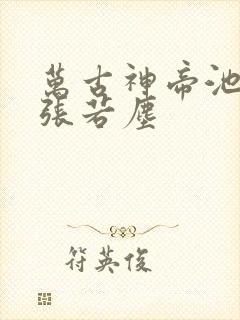 萬古神帝池
張若塵
符英俊